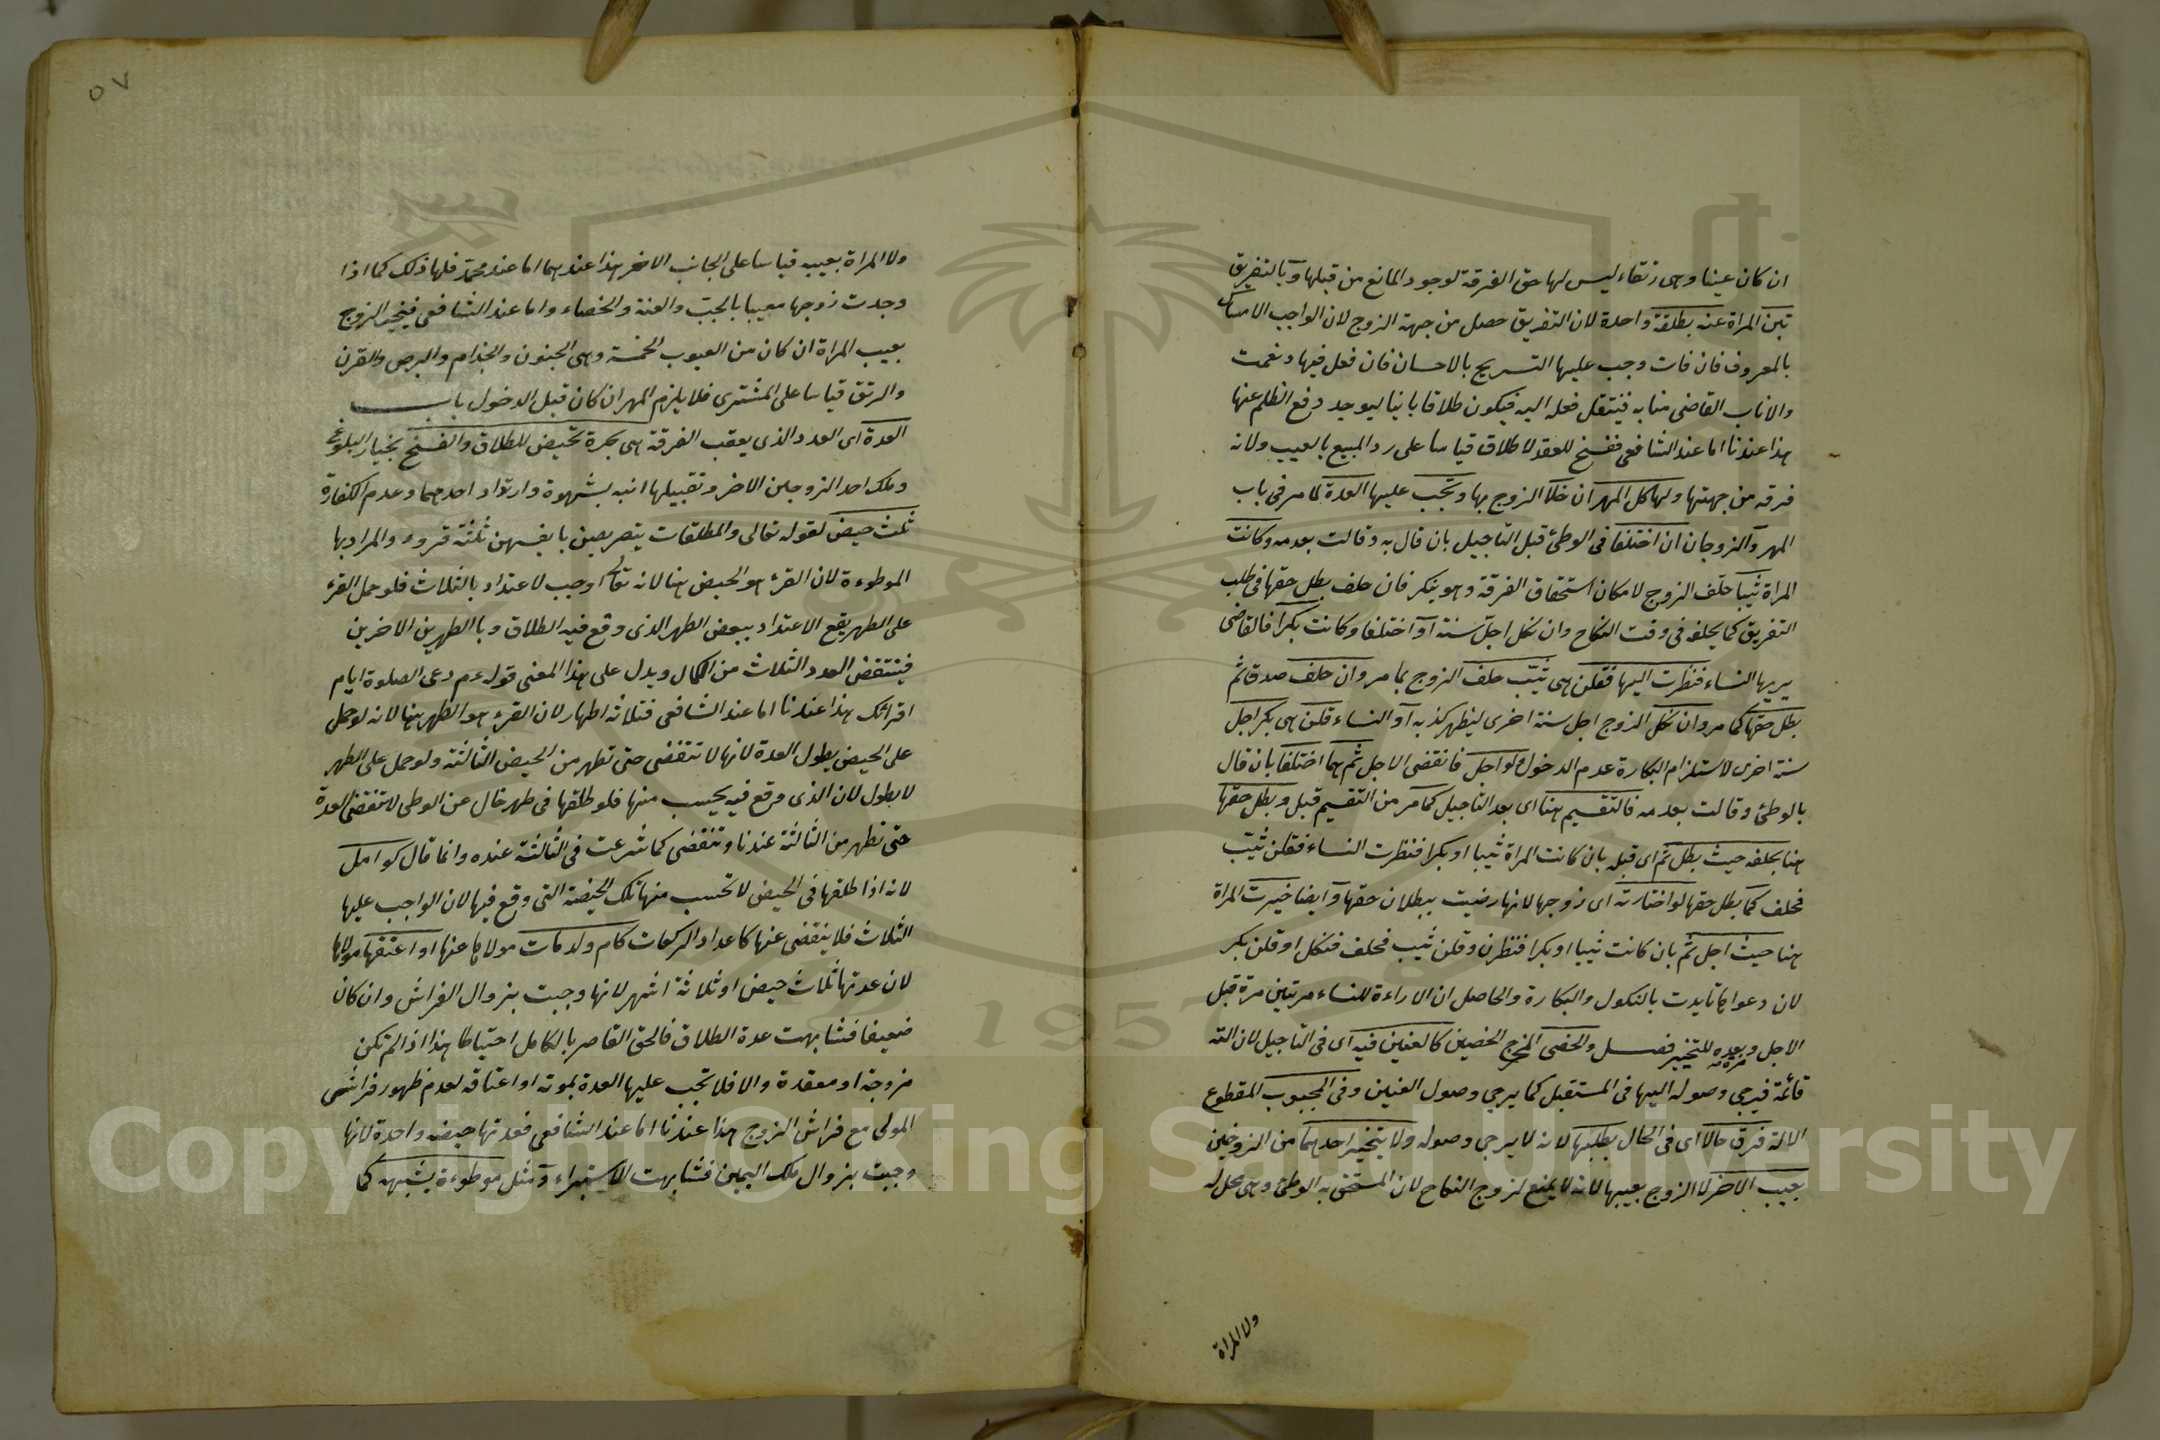 ان كان عنينا وهى رتقاء ليس لها حق الفرقة لوجود المانع من قبلها وبالتفريق
تبين المراة عنه بطلقة واحدة لان التفريق حصل من جهة الزوج لان الواجب الامساك
بالمعروف فان فات وجب عليها التسريح بالاحسان فان فعل فبها ونعمت
والاناب القاضى منابه فينتقل فعله اليه فيكون طلاقا باينا ليوجد دفع الظلم عنها
هذا عندنا اما عند الشافعى ففسخ للعقد لا طلاق قياسا على رد المبيع بالعيب ولانه
فرقة من جهتها ولها كل المهر ان خلا الزوج بها وتجب عليها العدة لما مر فى باب
المهر والزوجان ان اختلفا فى الوطئ قبل التاجيل بان قال به وقالت بعدمه وكانت
المراة ثيبا حلف الزوج لامكان استحقاق الفرقة وهو ينكر فان حلف بطل حقها فى طلب
التفريق كما يحلف فى وقت النكاح وان نكل اجل سنة او اختلفا وكانت بكرا فالقاضى
يريها النساء فنظرت اليها فقلن هى ثيب حلف الزوج بما مر وان حلف صدقا ثم
بطل حقها كما مر وان نكل الزوج اجل سنة اخرى ليظهر كذبه او النساء قلن هى بكر اجل
سنة اخرى لاستلزام البكارة عدم الدخول ولو اجل فانقضى الاجل ثم هما اختلفا بان قال
بالوطئ وقالت بعدمه فالتقسيم هنا اى بعد التاجيل كما مر من التقسيم قبل وبطل حقها
هنا بحلفه حيث بطل ثم اى قبله بان كانت المراة ثيبا او بكرا فنظرت النساء فقلن ثيب
فحلف كما بطل حقها لو اختارته اى زوجها لانها رضيت ببطلان حقها وايضا خيرت المراة
هنا حيث اجل ثم بان كانت ثيبا او بكرا فنظرن وقلن ثيب فحلف فنكل او قلن بكر
لان دعواها تايدت بالنكول والبكارة والحاصل ان الاراءة للنساء مرتين مرة قبل
الاجل ومرة بعده للتخيير فصل والخصى المخرج الخصيين كالعنين فيه اى فى التاجيل لان الته
قائمة فيرجى وصوله اليها فى المستقبل كما يرجى وصول العنين وفى المجبوب المقطوع
الالة فرق حالا اى فى الحال بطلبها لانه لا يرجى وصوله ولا يتخير احدهما من الزوجين
بعيب الاخر لا الزوج بعيبها لانه لا يمنع لزوج النكاح لان المستحق به الوطئ وهى محل له
ولا المراة
٥٧
ولا المراة بعيبه قياسا على الجانب الاخر هذا عندهما اما عند محمد فلها ذلك كما اذا
وجدت زوجها معيبا بالجب والعنة والخصاء واما عند الشافعى فيتخير الزوج
بعيب المراة ان كان من العيوب الخمسة وهى الجنون والجذام والبرص والقرن
والرتق قياسا على المشترى فلا يلزم المهر ان كان قبل الدخول باب
العدة اى العدد الذى يعقب الفرقة هى بحرة تحيض للطلاق والفسخ بخيار البلوغ
وملك احد الزوجين الاخر وتقبيلها ابنه بشهوة وارتداد احدهما وعدم الكفاءة
ثلث حيض لقوله تعالى والمطلقات يتربصن بانفسهن ثلثة قروء والمراد بها
الموطوءة لان القرء هو الحيض هنا لانه تعالى اوجب لاعتداد بالثلاث فلو حمل القرء
على الطهر يقع الاعتداد ببعض الطهر الذى وقع فيه الطلاق وبالطهرين الاخرين
فينتقض العدد الثلاث من الكمال ويدل على هذا المعنى قوله عم دعى الصلوة ايام
اقرائك هذا عندنا اما عند الشافعى فثلاثة اطهار لان القرء هو الطهر هنا لانه لو حمل
على الحيض يطول العدة لانها لا تنقضى حتى تطهر من الحيض الثالثة ولو حمل على الطهر
لا يطول لان الذى وقع فيه يحسب منها فلو طلقها فى طهر خال عن الوطى لا تنقضى العدة
حتى تطهر من الثالثة عندنا وتنقضى كما شرعت فى الثالثة عنده وانما قال كوامل
لانه اذا طلقها فى الحيض لا تحسب منها تلك الحيضة التى وقع فيها لان الواجب عليها
الثلاث فلا ينقضى عنها كاعداد الركعات كام ولد مات مولاها عنها او اعتقها مولاها
لان عدتها ثلاث حيض او ثلاثة اشهر لانها وجبت بزوال الفراش وان كان
ضعيفا فشابهت عدة الطلاق فالحق القاصر بالكامل احتياطا هذا اذا لم تكن
مزوجة او معتدة والا فلا تجب عليها العدة بموته او اعتاقه لعدم ظهور فراش
المولى مع فراش الزوج هذا عندنا اما عند الشافعى فعدتها حيضة واحدة لانها
وجبت بزوال ملك اليمين فشابهت الاستبراء ومثل موطوءة بشبهة كما
Copyright © King Saud University
1957